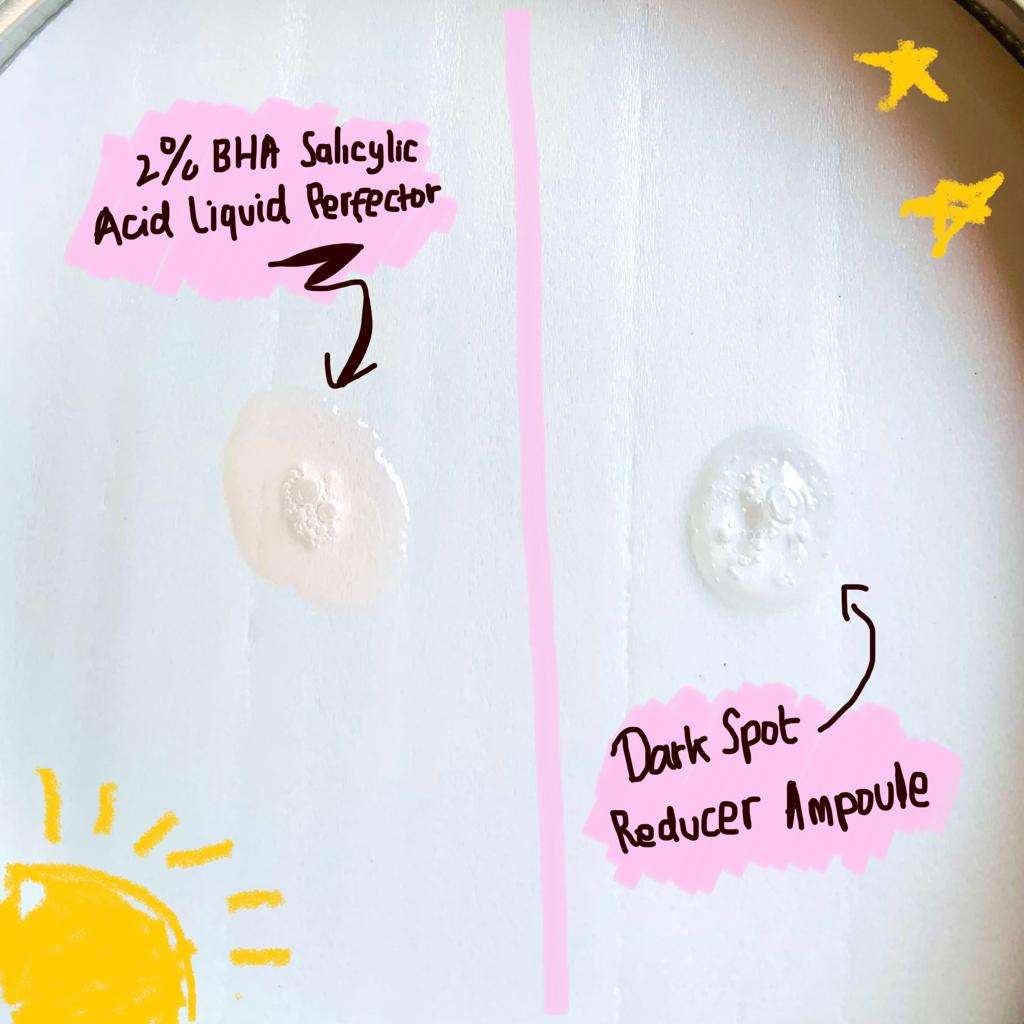 2% BHA Salicylic
Acid Liquid Perfector
Dark Spot
Reducer Ampoule